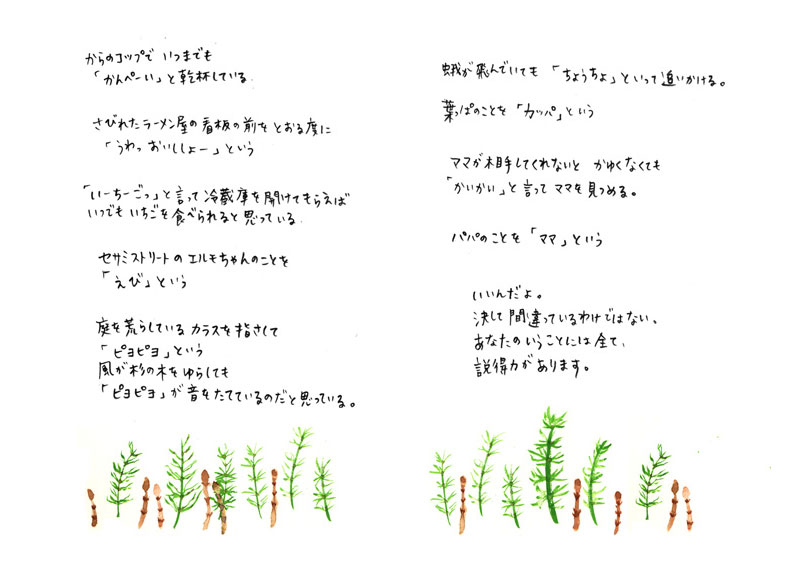 からのコップで いつまでも
「かんぺーい」と乾杯している
さびれたラーメン屋の看板の前をとおる度に
「うわっ おいししょー」という
「いーちーごっ」と言って冷蔵庫を開けてもらえば
いつでもいちごを食べられると思っている
セサミストリートのエルモちゃんのことを
「えび」という
庭を荒らしているカラスを指さして
「ピヨピヨ」という
風が杉の木をゆらしても
「ピヨピヨ」が音をたてているのだと思っている。
蛾が飛んでいても「ちょうちょ」といって追いかける。
葉っぱのことを「カッパ」という
ママが相手してくれないと かゆくなくても
「かいかい」と言ってママを見つめる。
パパのことを「ママ」という
いいんだよ。
決して間違っているわけではない、
あなたのいうことには全て、
説得力があります。